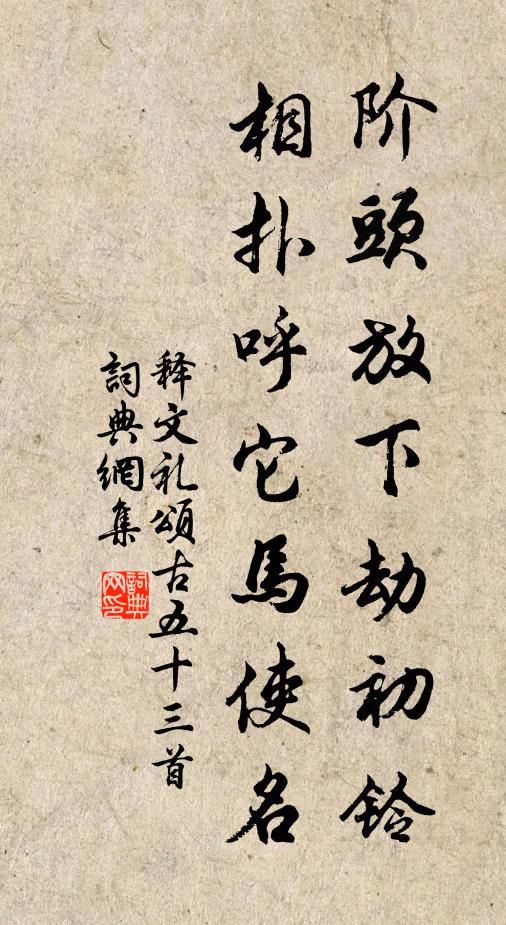 阶頭放下劫初鈴
相扑呼它馬使名
释文礼頌古五十三首
詞典網集
詞典网印